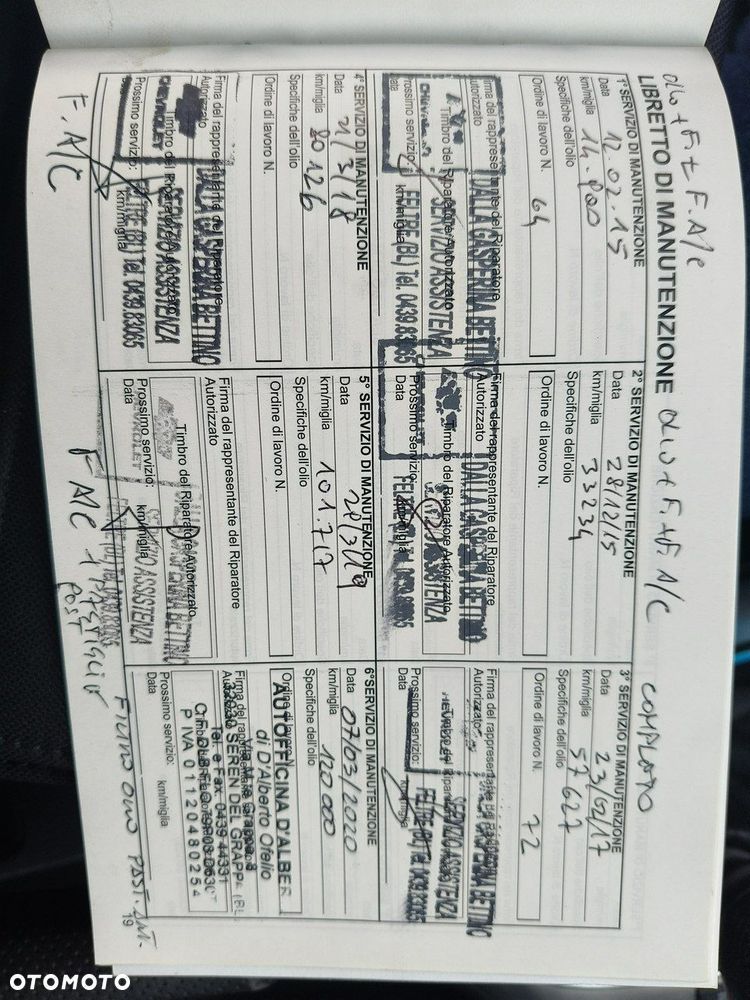 olio + F + F. A/C
LIBRETTO DI MANUTENZIONE
olio + F. + F. A/C
COMPLETO
1° SERVIZIO DI MANUTENZIONE
Data 12.02.15
km/miglia 14.900
Specifiche dell'olio
Ordine di lavoro N. 64
Firma del rappresentante del Riparatore
Autorizzato
Timbro del Riparatore Autorizzato
DALLA GASPERINA BETTINO
SERVIZIO ASSISTENZA
FELTRE (BL) Tel. 0439.83065
CHEVROLET
Prossimo servizio: km/miglia
Data
2° SERVIZIO DI MANUTENZIONE
Data 28/12/15
km/miglia 33234
Specifiche dell'olio
Ordine di lavoro N.
Firma del rappresentante del Riparatore
Autorizzato
Timbro del Riparatore Autorizzato
DALLA GASPERINA BETTINO
SERVIZIO ASSISTENZA
FELTRE (BL) Tel. 0439.83065
Prossimo servizio: km/miglia
Data
3° SERVIZIO DI MANUTENZIONE
Data 23/02/17
km/miglia 57627
Specifiche dell'olio
Ordine di lavoro N. 72
Firma del rappresentante del Riparatore
Autorizzato
DALLA GASPERINA BETTINO
SERVIZIO ASSISTENZA
FELTRE (BL) Tel. 0439.83065
CHEVROLET
Prossimo servizio: km/miglia
Data
4° SERVIZIO DI MANUTENZIONE
Data 21/3/18
km/miglia 80126
Specifiche dell'olio
Ordine di lavoro N.
Firma del rappresentante del Riparatore
Autorizzato
Timbro del Riparatore Autorizzato
DALLA GASPERINA BETTINO
SERVIZIO ASSISTENZA
FELTRE (BL) Tel. 0439.83065
CHEVROLET
Prossimo servizio: km/miglia
Data
F. A/C
5° SERVIZIO DI MANUTENZIONE
Data 28/3/19
km/miglia 101.717
Specifiche dell'olio
Ordine di lavoro N.
Firma del rappresentante del Riparatore
Autorizzato
Timbro del Riparatore Autorizzato
DALLA GASPERINA BETTINO
SERVIZIO ASSISTENZA
FELTRE (BL) Tel. 0439.83065
CHEVROLET
Prossimo servizio: km/miglia
Data
F A/C + PASTIGLIE
POST
6° SERVIZIO DI MANUTENZIONE
Data 07/03/2020
km/miglia 120000
Specifiche dell'olio
Ordine di lavoro N.
AUTOFFICINA D'ALBER
di D'Alberto Ofelio
Via M.te Grappa, 8
32030 SEREN DEL GRAPPA (BL)
Tel. e Fax 0439 44331
P. IVA 01120480254
Prossimo servizio: km/miglia
Data
FILTRO OLIO PAST. ANT.
19
OTOMOTO